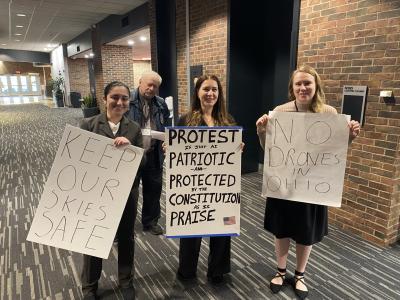 KEEP
OUR
SKIES
SAFE
PROTEST
IS JUST AS
PATRIOTIC
AND
PROTECTED BY THE
CONSTITUTION
AS IS
PRAISE
NO
DRONES
IN
OHIO